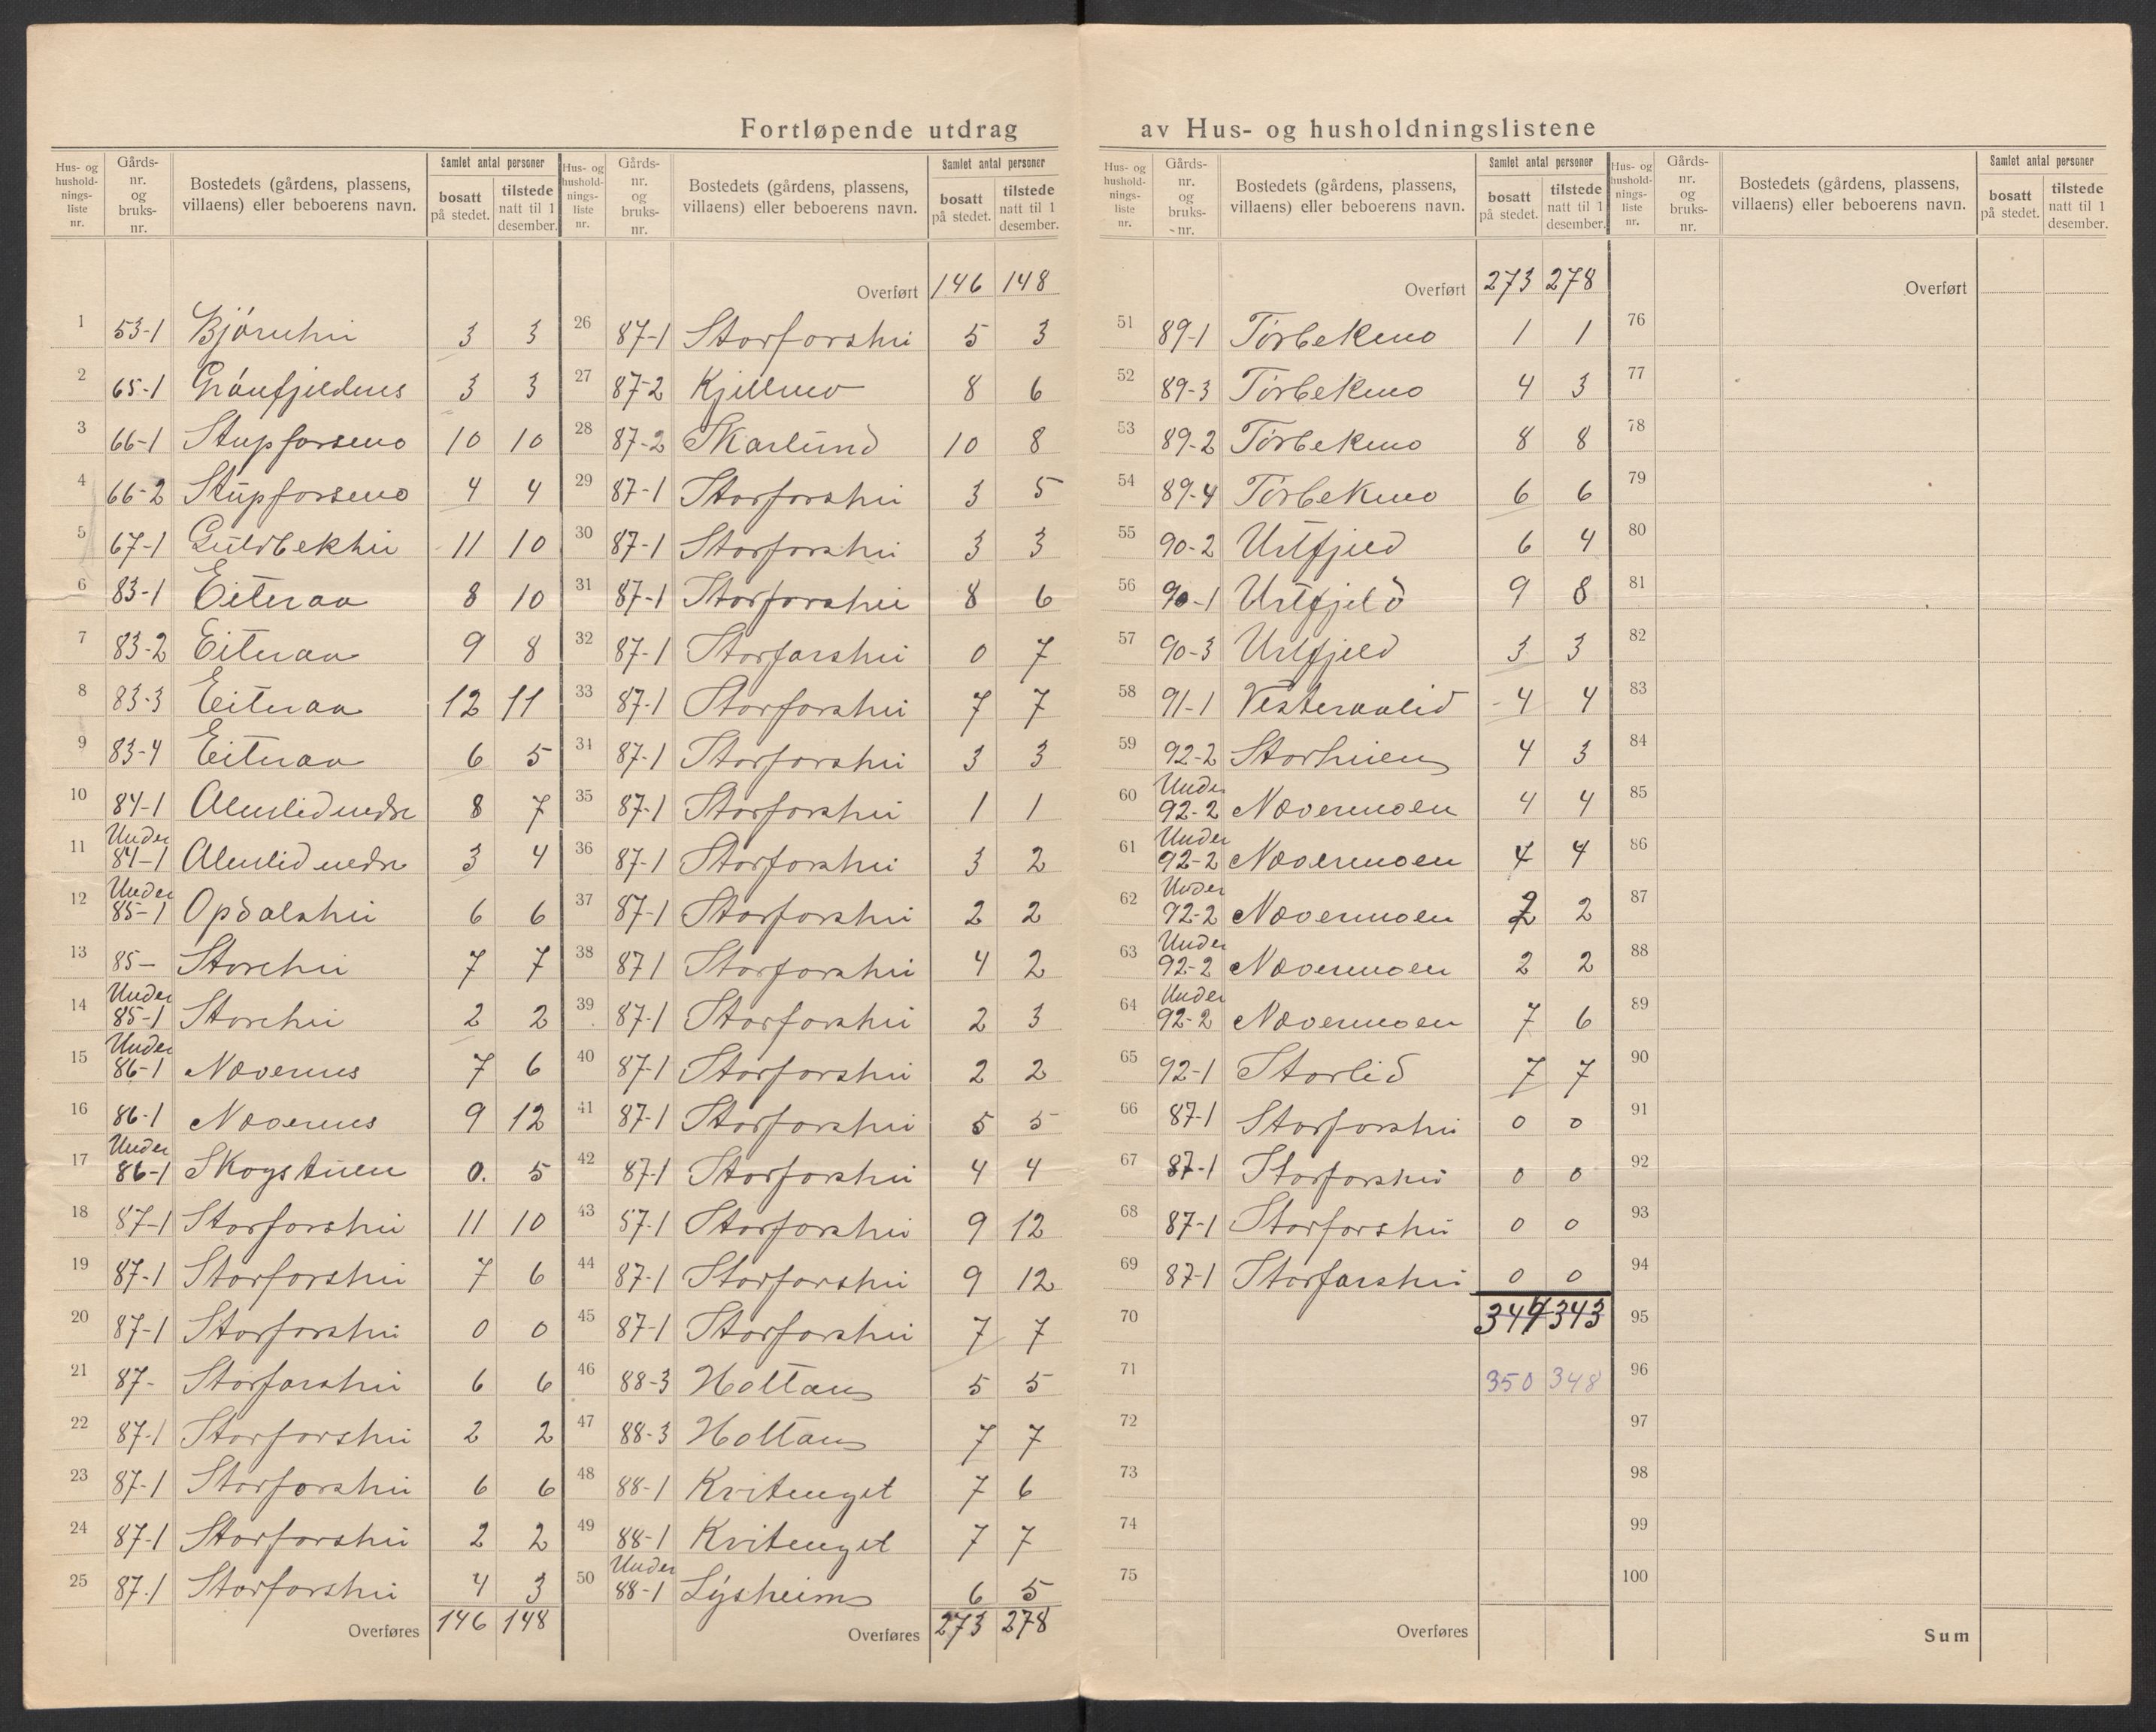 Fortløpende utdrag av Hus- og husholdningslistene
Hus- og husholdningsliste nr. | Gårds-nr. og bruks-nr. | Bostedets (gårdens, plassens, villaens) eller beboerens navn. | Samlet antal personer: bosatt på stedet. | tilstede natt til 1 desember.
1 53-1 Bjørnhei 3 3
2 65-1 Grønfjeldnes 3 3
3 66-1 Stupforsmo 10 10
4 66-2 Stupforsmo 4 4
5 67-1 Guldbekhei 11 10
6 83-1 Eiteraa 8 10
7 83-2 Eiteraa 9 8
8 83-3 Eiteraa 12 11
9 83-4 Eiteraa 6 5
10 84-1 Almlid nedre 8 7
11 Under 84-1 Almlid nedre 3 4
12 Under 85-1 Opdalshei 6 6
13 85- Storehei 7 7
14 Under 85-1 Storehei 2 2
15 Under 86-1 Nævernes 7 6
16 86-1 Nævernes 9 12
17 Under 86-1 Skogstuen 0. 5
18 87-1 Storforshei 11 10
19 87-1 Storforshei 7 6
20 87-1 Storforshei 0 0
21 87- Storforshei 6 6
22 87-1 Storforshei 2 2
23 87-1 Storforshei 6 6
24 87-1 Storforshei 2 2
25 87-1 Storforshei 4 3
Overføres 146 148
Hus- og husholdningsliste nr. | Gårds-nr. og bruks-nr. | Bostedets (gårdens, plassens, villaens) eller beboerens navn. | Samlet antal personer: bosatt på stedet. | tilstede natt til 1 desember.
Overført 146 148
26 87-1 Storforshei 5 3
27 87-2 Kjellmo 8 6
28 87-2 Skarlund 10 8
29 87-1 Storforshei 3 5
30 87-1 Storforshei 3 3
31 87-1 Storforshei 8 6
32 87-1 Storforshei 0 7
33 87-1 Storforshei 7 7
34 87-1 Storforshei 3 3
35 87-1 Storforshei 1 1
36 87-1 Storforshei 3 2
37 87-1 Storforshei 2 2
38 87 1 Storforshei 4 2
39 87-1 Storforshei 2 3
40 87-1 Storforshei 2 2
41 87-1 Storforshei 5 5
42 87-1 Storforshei 4 4
43 87-1 Storforshei 9 12
44 87-1 Storforshei 9 12
45 87-1 Storforshei 7 7
46 88-3 Holtan 5 5
47 88-3 Holtan 7 7
48 88-1 Kvitenget 7 6
49 88-1 Kvitenget 7 7
50 Under 88-1 Lysheim 6 5
Overføres 273 278
Hus- og husholdningsliste nr. | Gårds-nr. og bruks-nr. | Bostedets (gårdens, plassens, villaens) eller beboerens navn. | Samlet antal personer: bosatt på stedet. | tilstede natt til 1 desember.
Overført 273 278
51 89-1 Tørbekmo 1 1
52 89-3 Tørbekmo 4 3
53 89-2 Tørbekmo 8 8
54 89-4 Tørbekmo 6 6
55 90-2 Urtfjeld 6 4
56 90-1 Urtfjeld 9 8
57 90-3 Urtfjeld 3 3
58 91-1 Vesteraalid 4 4
59 92-2 Storheien 4 3
60 Under 92-2 Nævermoen 4 4
61 Under 92-2 Nævermoen 4 4
62 Under 92-2 Nævermoen 2 2
63 Under 92-2 Nævermoen 2 2
64 Under 92-2 Nævermoen 7 6
65 92-1 Storlid 7 7
66 87-1 Storforshei 0 0
67 87-1 Storforshei 0 0
68 87-1 Storforshei 0 0
69 87-1 Storforshei 0 0
70 343
71 350 348
72
73
74
75
Overføres
Hus- og husholdningsliste nr. | Gårds-nr. og bruks-nr. | Bostedets (gårdens, plassens, villaens) eller beboerens navn. | Samlet antal personer: bosatt på stedet. | tilstede natt til 1 desember.
Overført
76
77
78
79
80
81
82
83
84
85
86
87
88
89
90
91
92
93
94
95
96
97
98
99
100
Sum